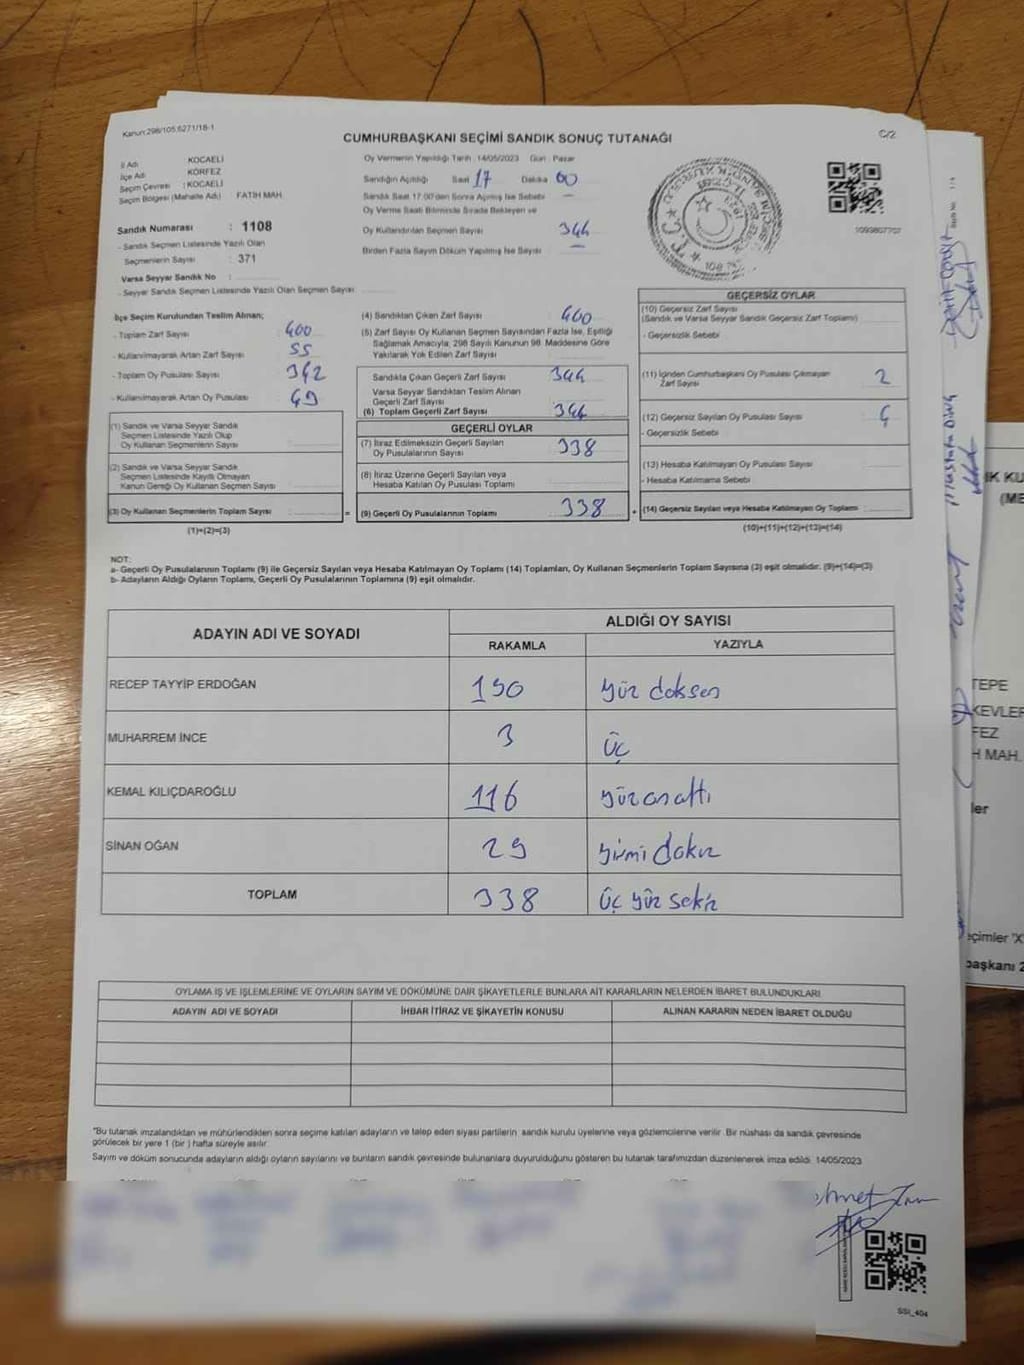 Kanun:298/105,6271/18-1
CUMHURBAŞKANI SEÇİMİ SANDIK SONUÇ TUTANAĞI
C/2
İl Adı : KOCAELİ
İlçe Adı KÖRFEZ
Seçim Çevresi : KOCAELİ
Seçim Bölgesi (Mahalle Adı) FATİH MAH.
Sandık Numarası : 1108
- Sandık Seçmen Listesinde Yazılı Olan
Seçmenlerin Sayısı : 371
Varsa Seyyar Sandık No :
- Seyyar Sandık Seçmen Listesinde Yazılı Olan Seçmen Sayısı
Oy Vermenin Yapıldığı Tarih :14/05/2023 Gün : Pazar
Sandığın Açıldığı Saat 17 Dakika 00
Sandık Saat 17:00'den Sonra Açılmış İse Sebebi
Oy Verme Saati Bitiminde Sırada Bekleyen ve
Oy Kullandırılan Seçmen Sayısı 344
Birden Fazla Sayım Döküm Yapılmış İse Sayısı —
1093807707
İlçe Seçim Kurulundan Teslim Alınan;
- Toplam Zarf Sayısı : 400
- Kullanılmayarak Artan Zarf Sayısı : 55
- Toplam Oy Pusulası Sayısı : 342
- Kullanılmayarak Artan Oy Pusulası : 49
(1) Sandık ve Varsa Seyyar Sandık
Seçmen Listesinde Yazılı Olup
Oy Kullanan Seçmenlerin Sayısı
(2) Sandık ve Varsa Seyyar Sandık
Seçmen Listesinde Kayıtlı Olmayan
Kanun Gereği Oy Kullanan Seçmen Sayısı
(3) Oy Kullanan Seçmenlerin Toplam Sayısı
(1)+(2)=(3)
(4) Sandıktan Çıkan Zarf Sayısı : 400
(5) Zarf Sayısı Oy Kullanan Seçmen Sayısından Fazla İse, Eşitliği
Sağlamak Amacıyla, 298 Sayılı Kanunun 98. Maddesine Göre
Yakılarak Yok Edilen Zarf Sayısı
Sandıkta Çıkan Geçerli Zarf Sayısı 344
Varsa Seyyar Sandıktan Teslim Alınan
Geçerli Zarf Sayısı
(6) Toplam Geçerli Zarf Sayısı 344
GEÇERLİ OYLAR
(7) İtiraz Edilmeksizin Geçerli Sayılan
Oy Pusulalarının Sayısı 338
(8) İtiraz Üzerine Geçerli Sayılan veya
Hesaba Katılan Oy Pusulası Toplamı
= (9) Geçerli Oy Pusulalarının Toplamı 338 +
GEÇERSİZ OYLAR
(10) Geçersiz Zarf Sayısı
(Sandık ve Varsa Seyyar Sandık Geçersiz Zarf Toplamı)
- Geçersizlik Sebebi
(11) İçinden Cumhurbaşkanı Oy Pusulası Çıkmayan
Zarf Sayısı 2
(12) Geçersiz Sayılan Oy Pusulası Sayısı
- Geçersizlik Sebebi
(13) Hesaba Katılmayan Oy Pusulası Sayısı
- Hesaba Katılmama Sebebi
(14) Geçersiz Sayılan veya Hesaba Katılmayan Oy Toplamı
(10)+(11)+(12)+(13)=(14)
NOT:
a- Geçerli Oy Pusulalarının Toplamı (9) ile Geçersiz Sayılan veya Hesaba Katılmayan Oy Toplamı (14) Toplamları, Oy Kullanan Seçmenlerin Toplam Sayısına (3) eşit olmalıdır. (9)+(14)=(3)
b- Adayların Aldığı Oyların Toplamı, Geçerli Oy Pusulalarının Toplamına (9) eşit olmalıdır.
ADAYIN ADI VE SOYADI ALDIĞI OY SAYISI
RAKAMLA YAZIYLA
RECEP TAYYİP ERDOĞAN 190 Yüz doksan
MUHARREM İNCE 3 Üç
KEMAL KILIÇDAROĞLU 116 Yüz on altı
SİNAN OĞAN 29 Yirmi dokuz
TOPLAM 338 Üç yüz sekiz
OYLAMA İŞ VE İŞLEMLERİNE VE OYLARIN SAYIM VE DÖKÜMÜNE DAİR ŞİKAYETLERLE BUNLARA AİT KARARLARIN NELERDEN İBARET BULUNDUKLARI
ADAYIN ADI VE SOYADI İHBAR İTİRAZ VE ŞİKAYETİN KONUSU ALINAN KARARIN NEDEN İBARET OLDUĞU
*Bu tutanak imzalandıktan ve mühürlendikten sonra seçime katılan adayların ve talep eden siyasi partilerin sandık kurulu üyelerine veya gözlemcilerine verilir. Bir nüshası da sandık çevresinde
görülecek bir yere 1 (bir ) hafta süreyle asılır.
Sayım ve döküm sonucunda adayların aldığı oyların sayılarını ve bunların sandık çevresinde bulunanlara duyurulduğunu gösteren bu tutanak tarafımızdan düzenlenerek imza edildi. 14/05/2023
SSİ_404
TEPE
KEVLER
FEZ
H MAH.
eçimler
başkanı 2